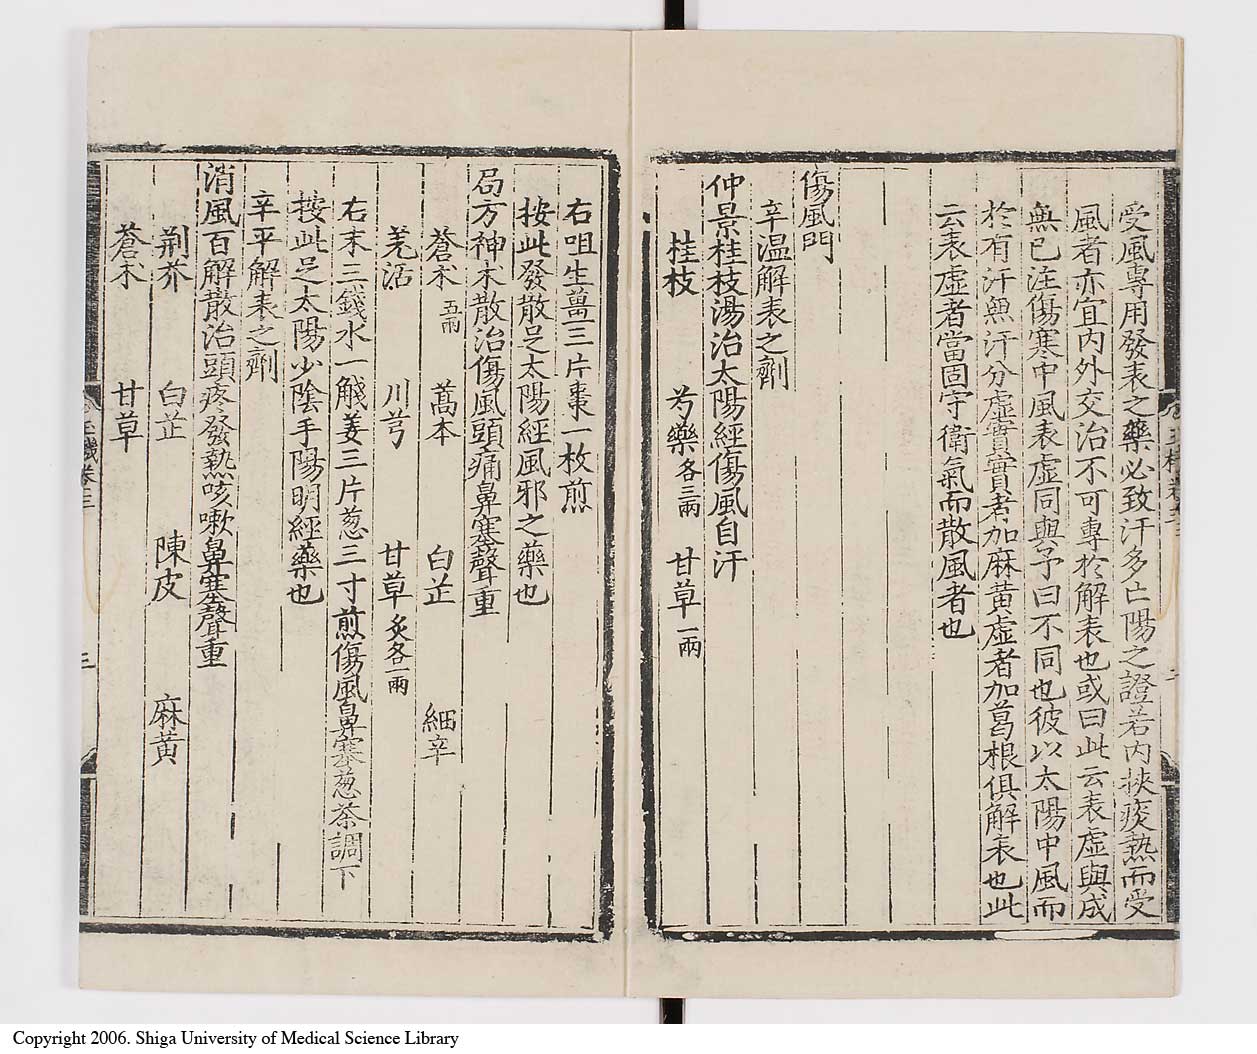 受風專用發表之藥必致汗多亡陽之證若內挾痰熱而受
風者亦宜內外交治不可專於解表也或曰此云表虛與成
無已注傷寒中風表虛同與予曰不同也彼以太陽中風而
於有汗無汗分虛實實者加麻黃虛者加葛根俱解表也此
云表虛者當固守衛氣而散風者也
傷風門
辛温解表之劑
仲景桂枝湯治太陽經傷風自汗
桂枝 芍藥各三兩 甘草一兩
右咀生薑三片棗一枚煎
按此發散足太陽經風邪之藥也
局方神术散治傷風頭痛鼻塞聲重
蒼术五兩 藁本 白芷 細辛
羌活 川芎 甘草炙各一兩
右末三錢水一觥姜三片葱三寸煎傷風鼻塞葱茶調下
按此足太陽少陰手陽明經藥也
辛平解表之劑
消風百解散治頭疼發熱咳嗽鼻塞聲重
荆芥 白芷 陳皮 麻黃
蒼术 甘草
三
Copyright 2006. Shiga University of Medical Science Library